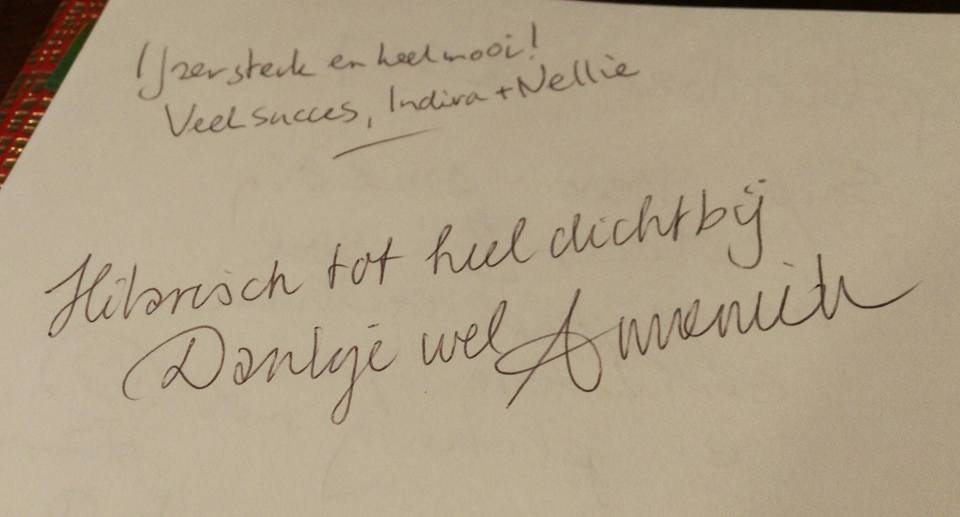 IJzersterk en heel mooi!
Veel succes, Indira + Nellie
Hilarisch tot heel dichtbij
Dankje wel